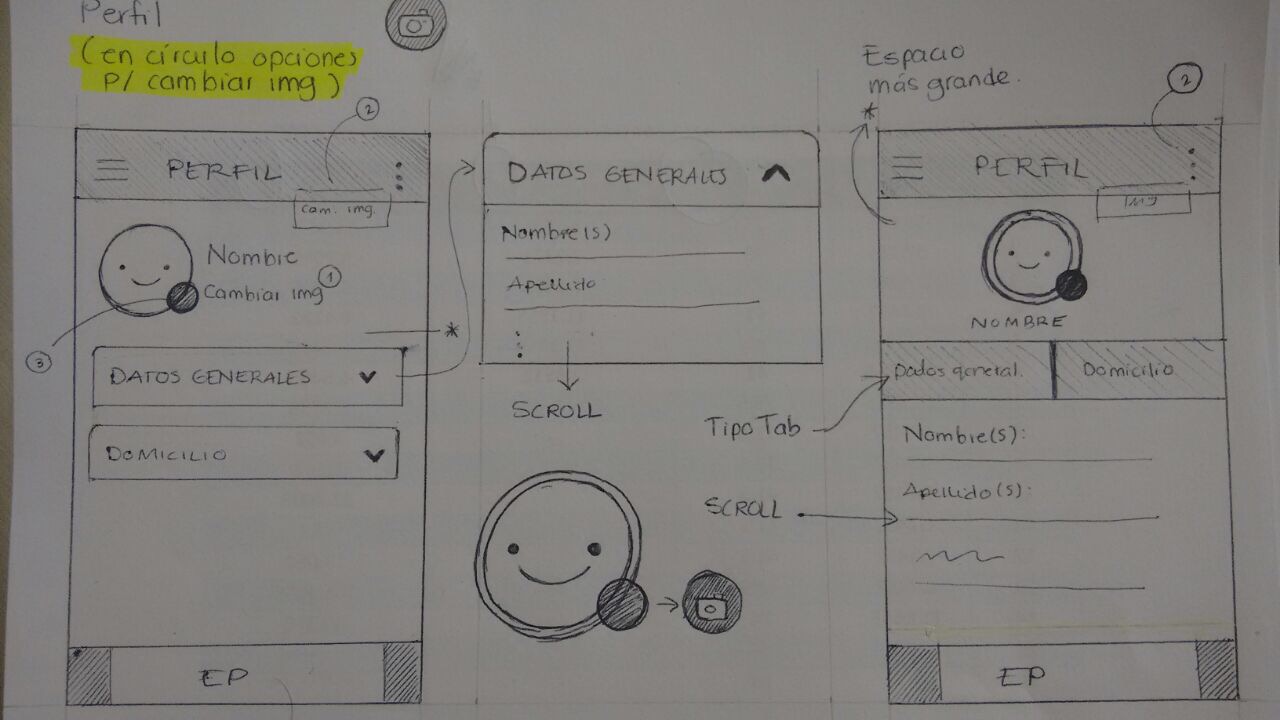 Perfil
(en círculo opciones
P/ cambiar img)
2
PERFIL
Cam. img.
Nombre
Cambiar img
1
*
3
DATOS GENERALES
DOMICILIO
EP
DATOS GENERALES
Nombre(s)
Apellido
SCROLL
Espacio
más grande.
*
2
PERFIL
IMG
NOMBRE
Datos general.
Domicilio
Tipo Tab
Nombre(s):
Apellido(s):
SCROLL
EP